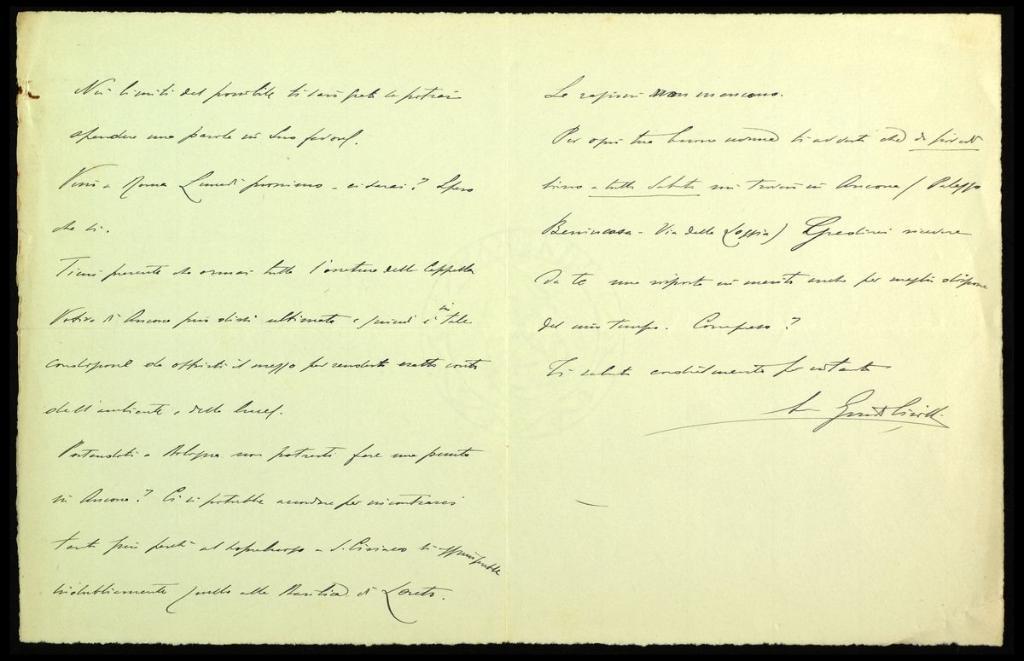 Nei limiti del possibile ti sarò grato se potrai
spendere una parola in suo favore.
Verrò a Roma Lunedì prossimo - ci sarai? Spero
che sì.
Tieni presente che ormai tutta l'ossatura della Cappella
Votiva di Ancona può dirsi ultimata e quindi è in tale
condizione da offrirti il mezzo per renderti esatto conto
dell'ambiente e della luce.
Portandoti a Bologna non potresti fare una punta
in Ancona? Ci si potrebbe accordare per incontrarci
tanto più perché al sopraluogo a S. Ciriaco si
indubbiamente quello alla Basilica di Loreto.
Le ragioni non mancano.
Per ogni tua buona norma ti avverto che di
sino a tutto Sabato mi trovi in Ancona (Palazzo
Benincasa - Via della Loggia) Gradirei ricevere
da te una risposta in merito anche per meglio disporre
del mio tempo. Compreso?
Ti saluto cordialmente